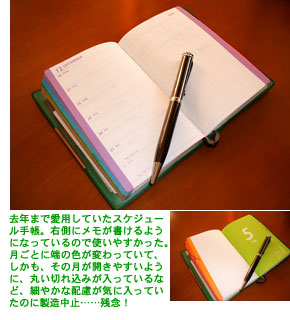 12 DECEMBER
去年まで愛用していたスケジュー
ル手帳。右側にメモが書けるよう
になっているので使いやすかった。
月ごとに端の色が変わっていて、
しかも、その月が開きやすいよう
に、丸い切れ込みが入っているな
ど、細やかな配慮が気に入ってい
たのに製造中止……残念！
5